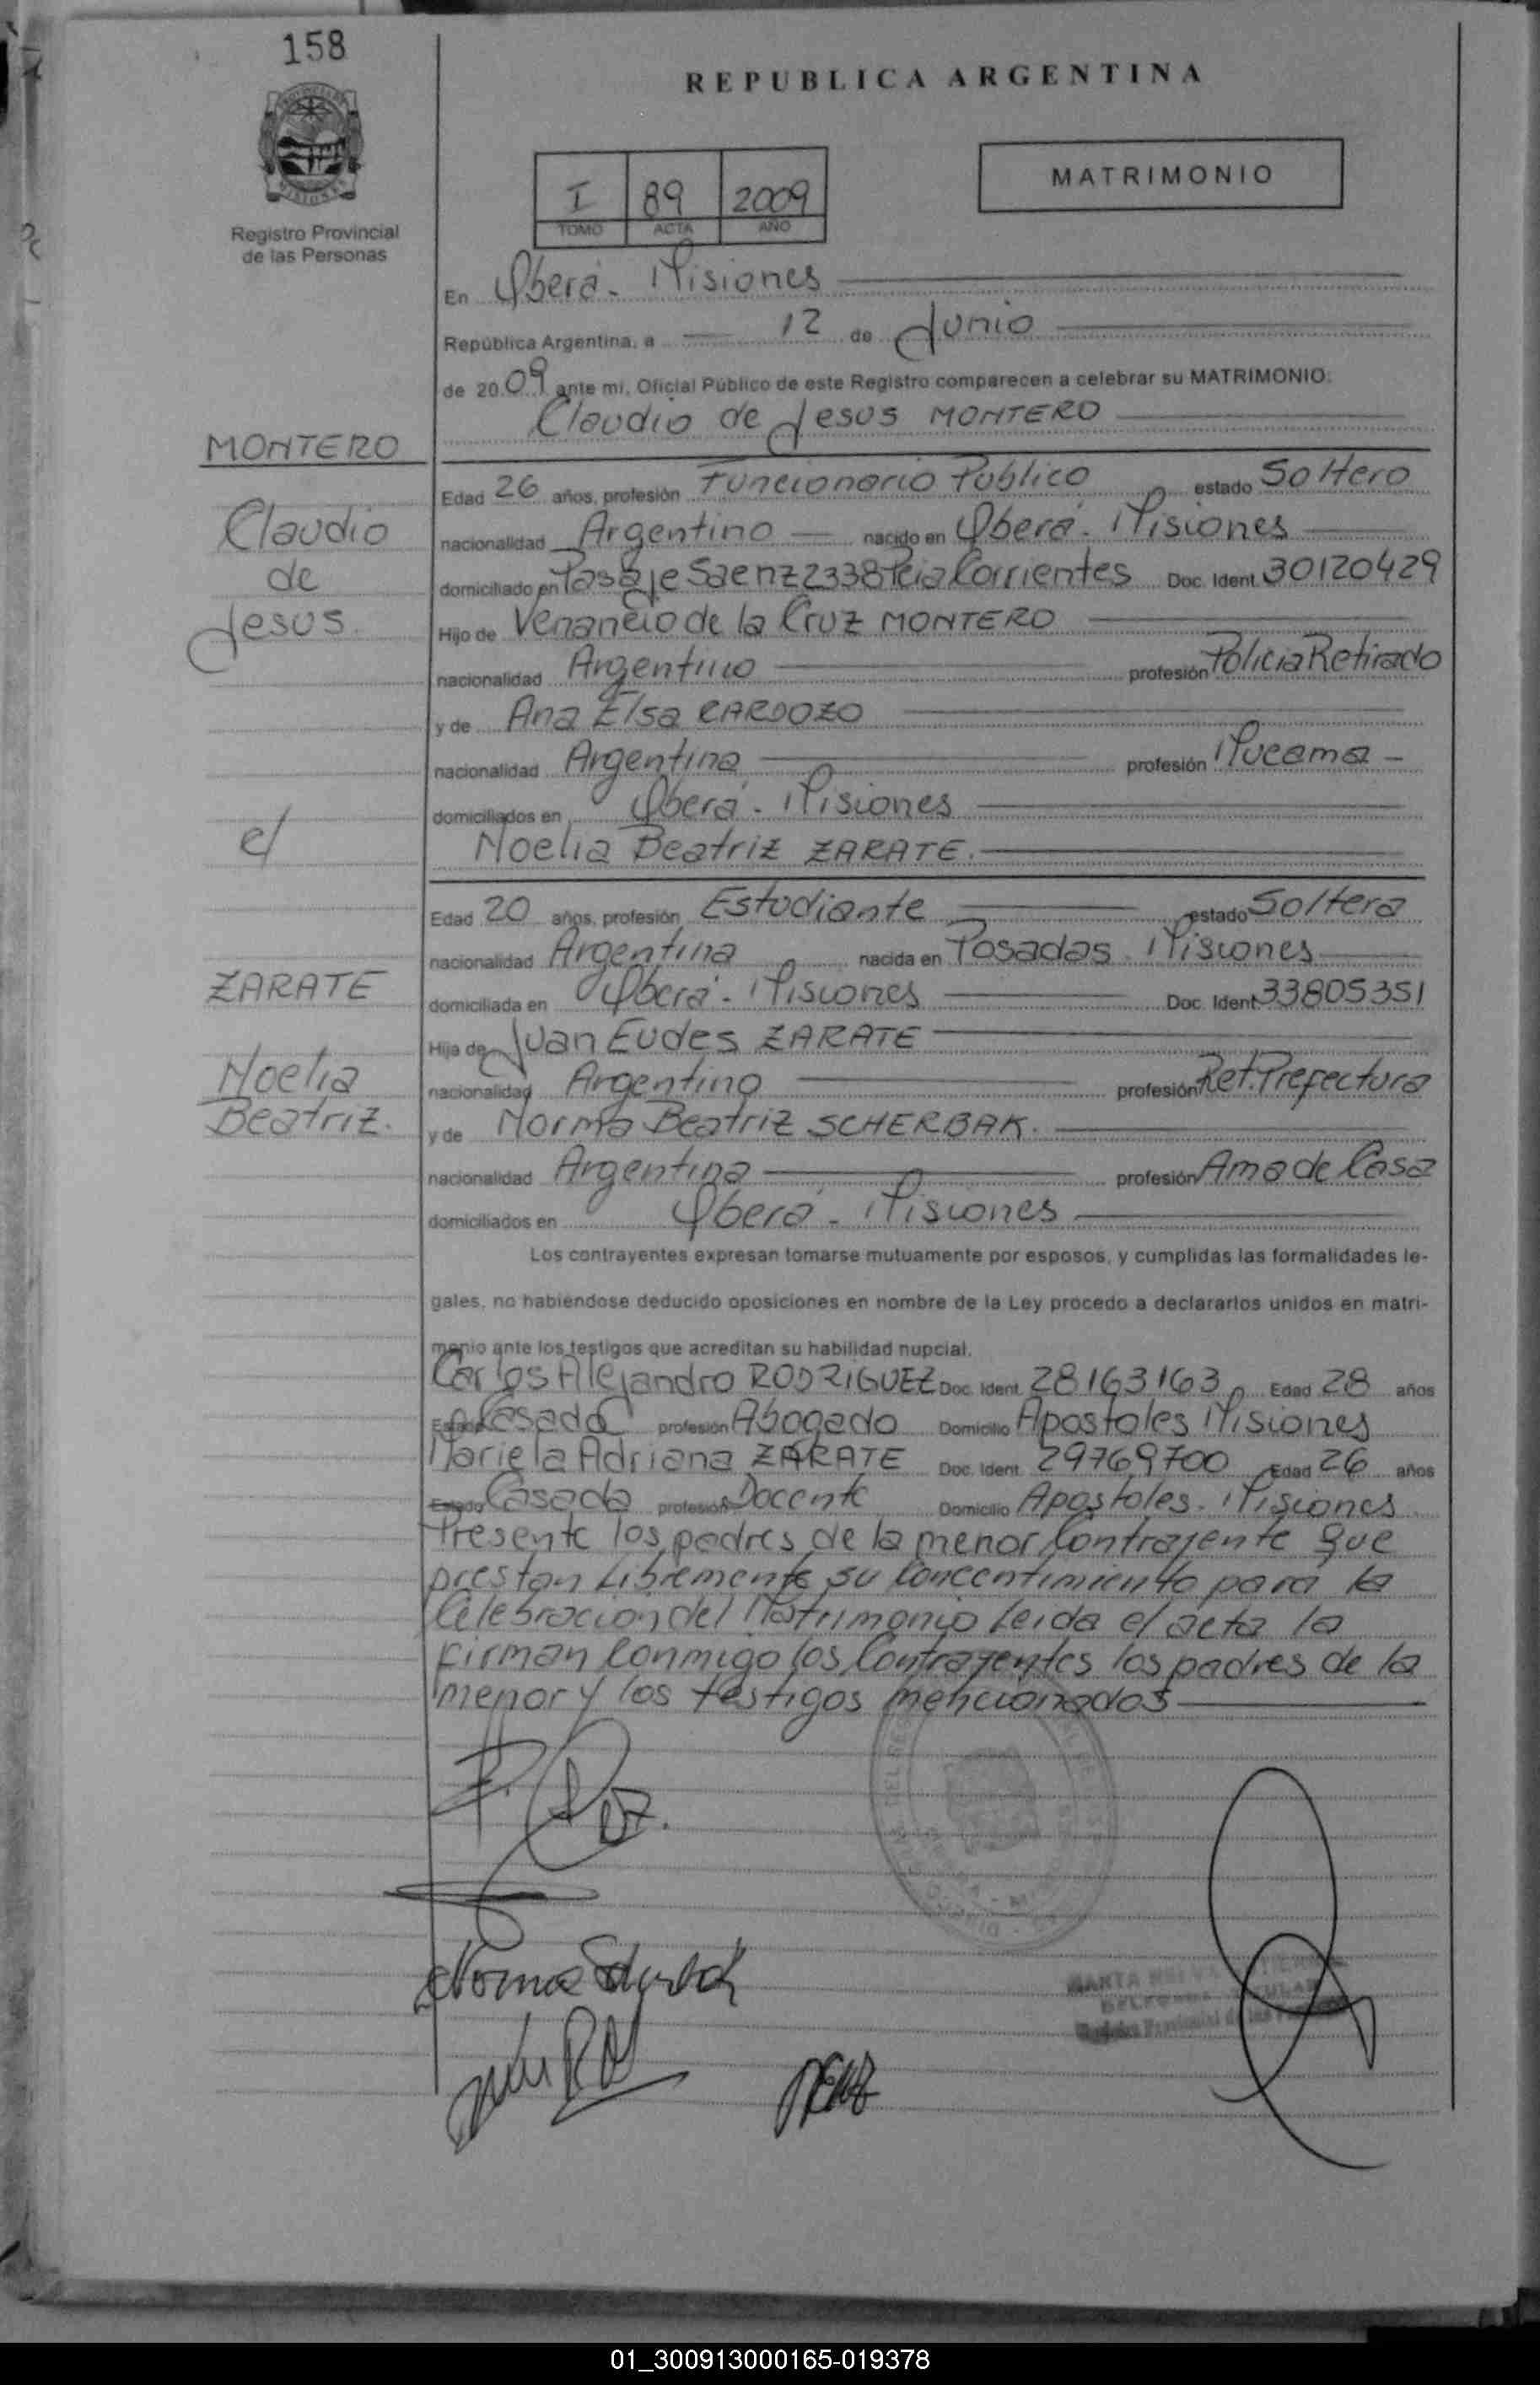 158
REPUBLICA ARGENTINA
MATRIMONIO
I 89 2009
TOMO ACTA AÑO
Registro Provincial
de las Personas
En Oberá - Misiones
República Argentina, a 12 de Junio
de 2009 ante mi, Oficial Público de este Registro comparecen a celebrar su MATRIMONIO:
Claudio de Jesus MONTERO
MONTERO
Edad 26 años, profesión Funcionario Publico estado Soltero
Claudio
nacionalidad Argentino nacido en Oberá - Misiones
de
domiciliado en Pasaje Saenz 2338 Pcia Corrientes Doc. Ident. 30120429
Jesus.
Hijo de Venancio de la Cruz MONTERO
nacionalidad Argentino profesión Policia Retirado
y de Ana Elsa CARDOZO
nacionalidad Argentina profesión Mucama -
domiciliados en Oberá - Misiones
c/
Noelia Beatriz ZARATE.
Edad 20 años, profesión Estudiante estado Soltera
nacionalidad Argentina nacida en Posadas - Misiones
ZARATE
domiciliada en Oberá - Misiones Doc. Ident. 33805351
Hija de Juan Eudes ZARATE
Noelia
nacionalidad Argentino profesión Ret. Prefectura
Beatriz.
y de Norma Beatriz SCHERBAK.
nacionalidad Argentina profesión Ama de Casa
domiciliados en Oberá - Misiones
Los contrayentes expresan tomarse mutuamente por esposos, y cumplidas las formalidades le-
gales, no habiendose deducido oposiciones en nombre de la Ley procedo a declararlos unidos en matri-
monio ante los testigos que acreditan su habilidad nupcial.
Carlos Alejandro RODRIGUEZ Doc. Ident. 28163163 Edad 28 años
Estado Casado profesión Abogado Domicilio Apostoles Misiones
Mariela Adriana ZARATE Doc. Ident. 29769700 Edad 26 años
Estado Casada profesión Docente Domicilio Apostoles - Misiones
Presente los padres de la menor Contrayente que
prestan Libremente su Concentimiento para la
Celebracion del Matrimonio Leida el acta la
Firman Conmigo los Contrayentes los padres de la
menor y los testigos mencionados
Norma
MARTA
Provincial de las
01_300913000165-019378